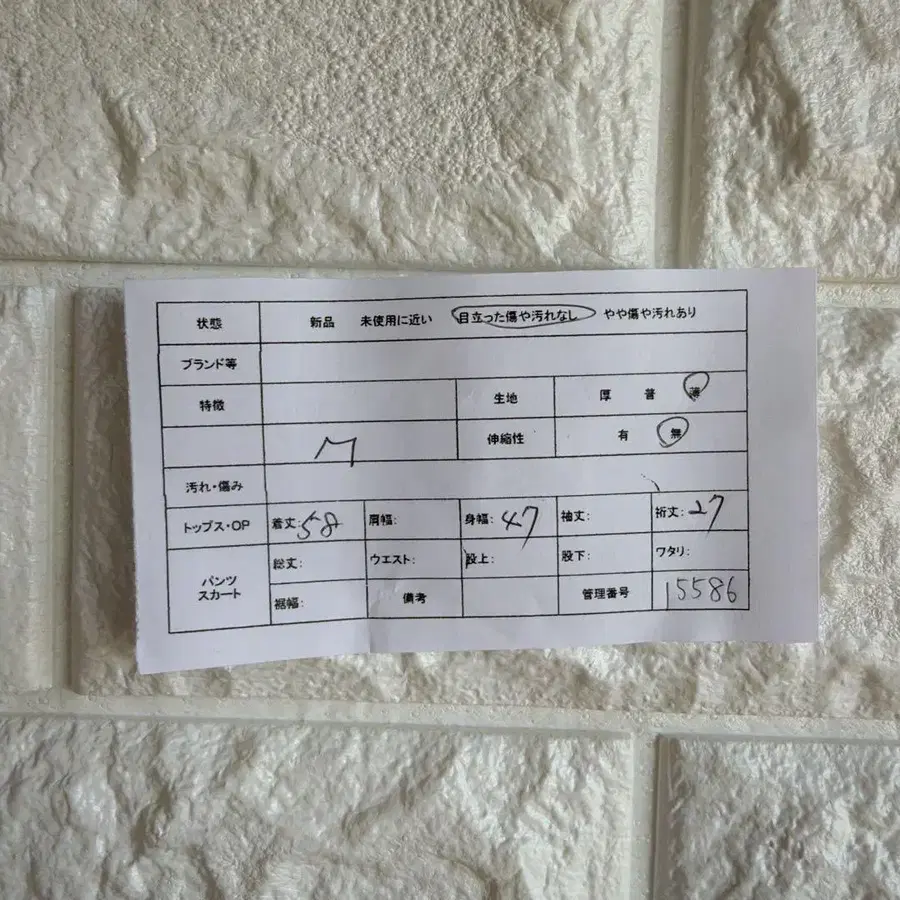 状態 新品 未使用に近い 目立った傷や汚れなし やや傷や汚れあり
ブランド等
特徴 生地 厚 普 薄
M 伸縮性 有 無
汚れ・傷み
トップス・OP 着丈:58 肩幅: 身幅:47 袖丈: 裄丈:27
パンツ スカート 総丈: ウエスト: 股上: 股下: ワタリ:
裾幅: 備考 管理番号 15586